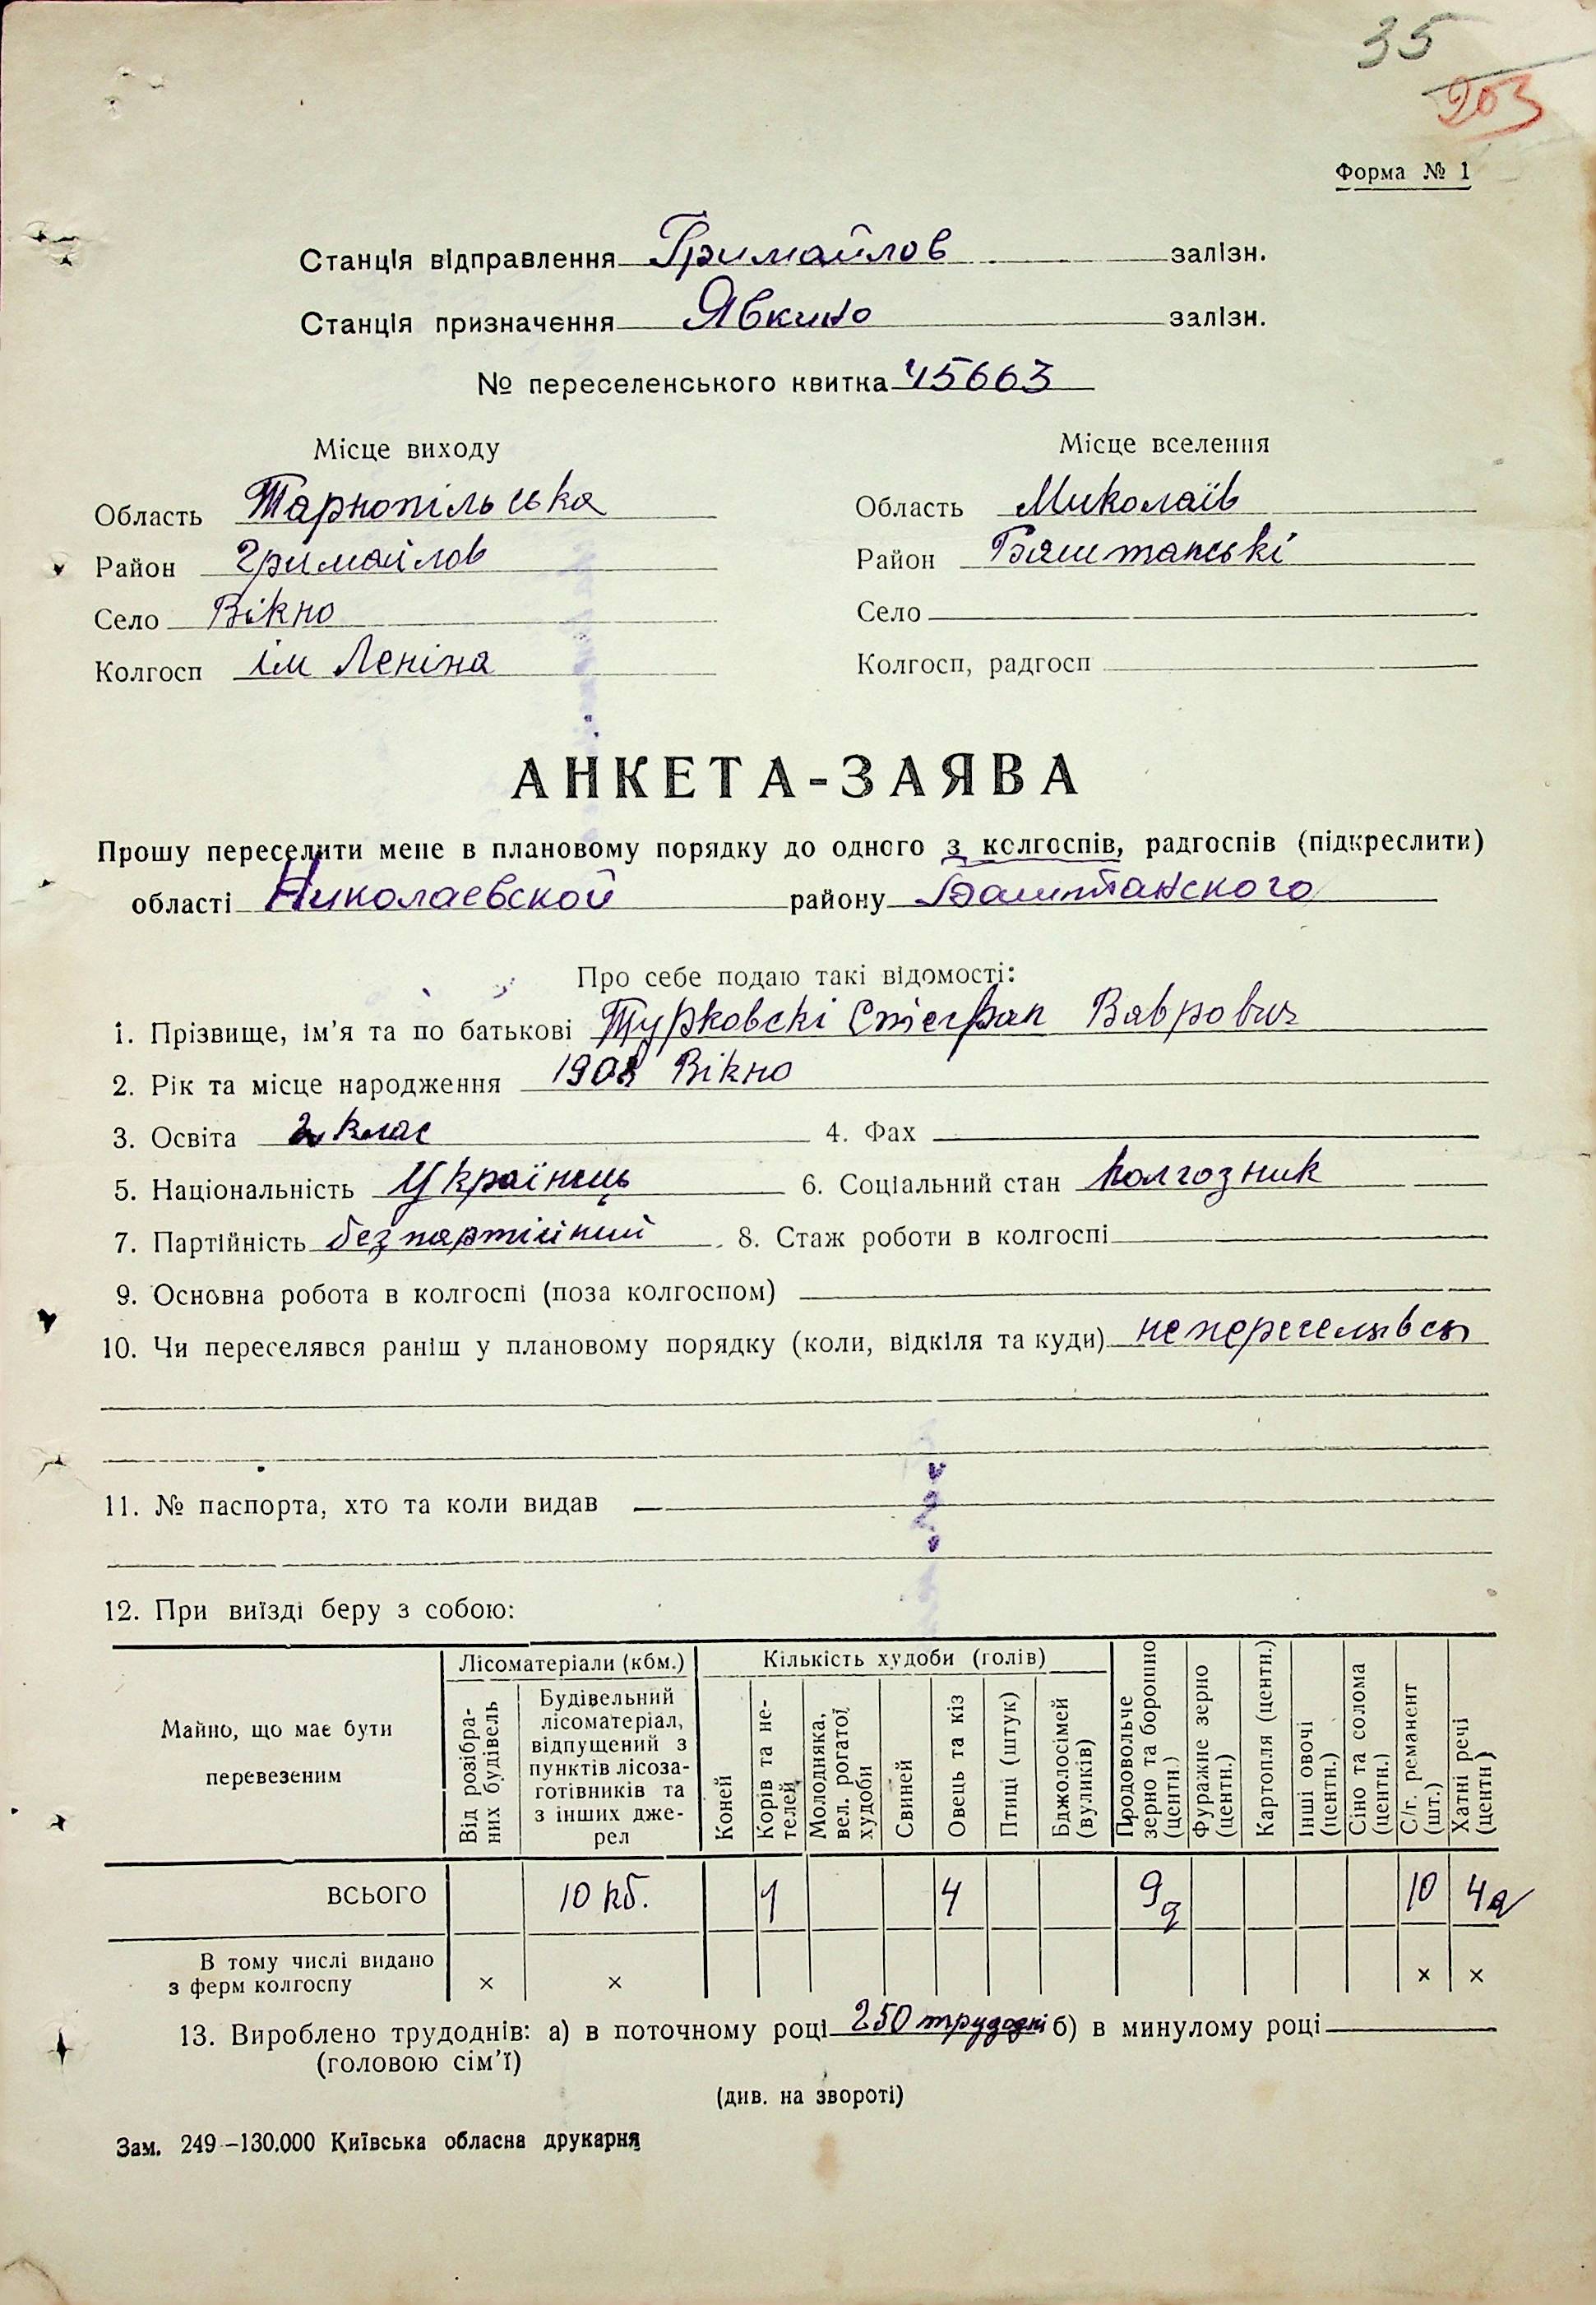 35
203
Форма № 1
Станція відправлення Гримайлов залізн.
Станція призначення Явкино залізн.
№ переселенського квитка 45663
Місце виходу
Місце вселення
Область Тарнопільська
Область Миколаїв
Район Гримайлов
Район Баштанські
Село Вікно
Село
Колгосп ім Леніна
Колгосп, радгосп
АНКЕТА-ЗАЯВА
Прошу переселити мене в плановому порядку до одного з колгоспів, радгоспів (підкреслити)
області Николаевской району Баштанского
Про себе подаю такі відомості:
1. Прізвище, ім'я та по батькові Турковскі Стефан Ваврович
2. Рік та місце народження 1908 Вікно
3. Освіта 2 клас 4. Фах
5. Національність Українець 6. Соціальний стан колгозник
7. Партійність безпартійний 8. Стаж роботи в колгоспі
9. Основна робота в колгоспі (поза колгоспом)
10. Чи переселявся раніш у плановому порядку (коли, відкіля та куди) непереселявся
11. № паспорта, хто та коли видав
12. При виїзді беру з собою:
Майно, що має бути перевезеним
Лісоматеріали (кбм.)
Від розібраних будівель
Будівельний лісоматеріал, відпущений з пунктів лісозаготівників та з інших джерел
Кількість худоби (голів)
Коней
Корів та нетелей
Молодняка, вел. рогатої худоби
Свиней
Овець та кіз
Птиці (штук)
Бджолосімей (вуликів)
Продовольче зерно та борошно (центн.)
Фуражне зерно (центн.)
Картопля (центн.)
Інші овочі (центн.)
Сіно та солома (центн.)
С/г. реманент (шт.)
Хатні речі (центн)
ВСЬОГО 10 кб. 1 4 9 q 10 4 q
В тому числі видано з ферм колгоспу × × × ×
13. Вироблено трудоднів: а) в поточному році 250 трудодні б) в минулому році
(головою сім'ї)
(див. на звороті)
Зам. 249–130.000 Київська обласна друкарня